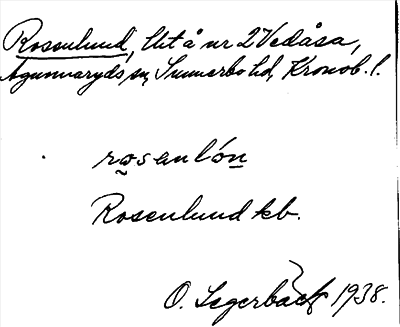 Rosenlund, lht å nr 2 Vedåsa,
Agunnaryds sn, Sunnerbo hd, Kronob. l.
rosanlón
Rosenlund kb.
O. Segerbäck 1938.